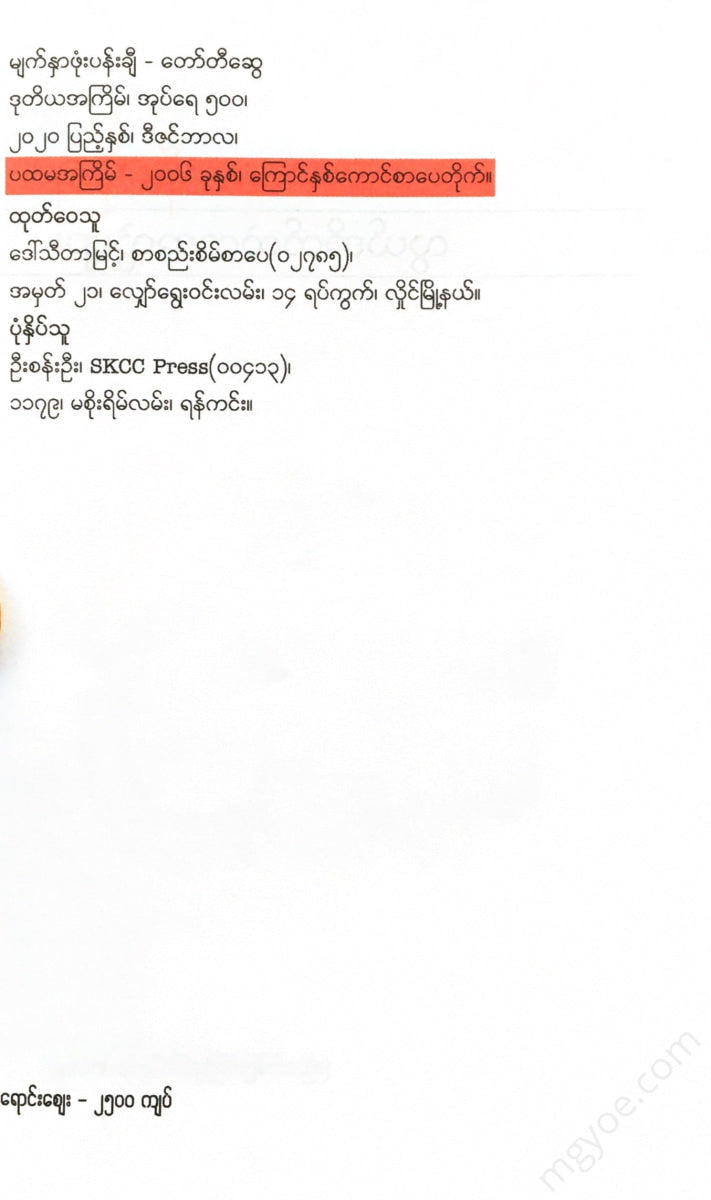 မျက်နှာဖုံးပန်းချီ - တော်တီဆွေ
ဒုတိယအကြိမ်၊ အုပ်ရေ ၅၀၀၊
၂၀၂၀ ပြည့်နှစ်၊ ဒီဇင်ဘာလ၊
ပထမအကြိမ် - ၂၀၀၆ ခုနှစ်၊ ကြောင်နှစ်ကောင်စာပေတိုက်။
ထုတ်ဝေသူ
ဒေါ်သီတာမြင့်၊ စာစည်းစိမ်စာပေ(၀၂၇၈၅)၊
အမှတ် ၂၁၊ လျှော်ရွေးဝင်းလမ်း၊ ၁၄ ရပ်ကွက်၊ လှိုင်မြို့နယ်။
ပုံနှိပ်သူ
ဦးစန်းဦး၊ SKCC Press(၀၀၄၁၃)၊
၁၁၇၉၊ မစိုးရိမ်လမ်း၊ ရန်ကင်း။
ရောင်းဈေး - ၂၅၀၀ ကျပ်
mgyoe.com